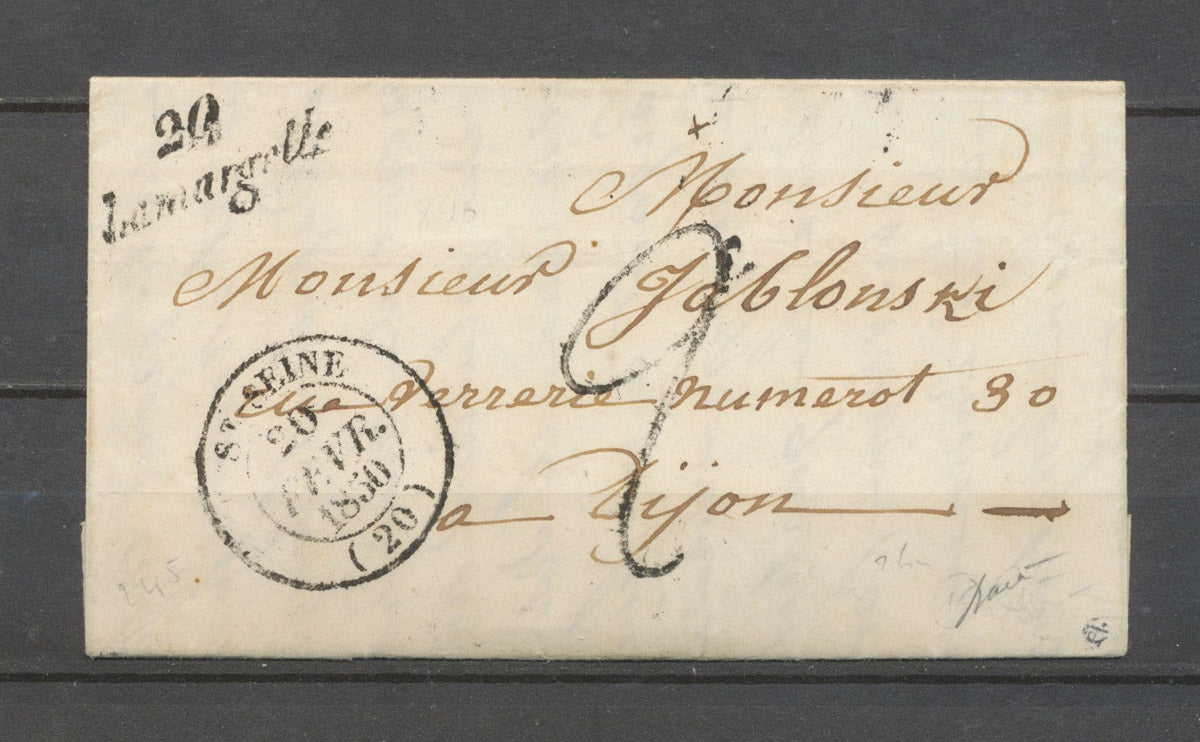 20
Lamargelle
Monsieur
Monsieur Jablonski
rue Verrerie numerot 30
a Dijon
2
ST SEINE
20
FEVR.
1850
(20)